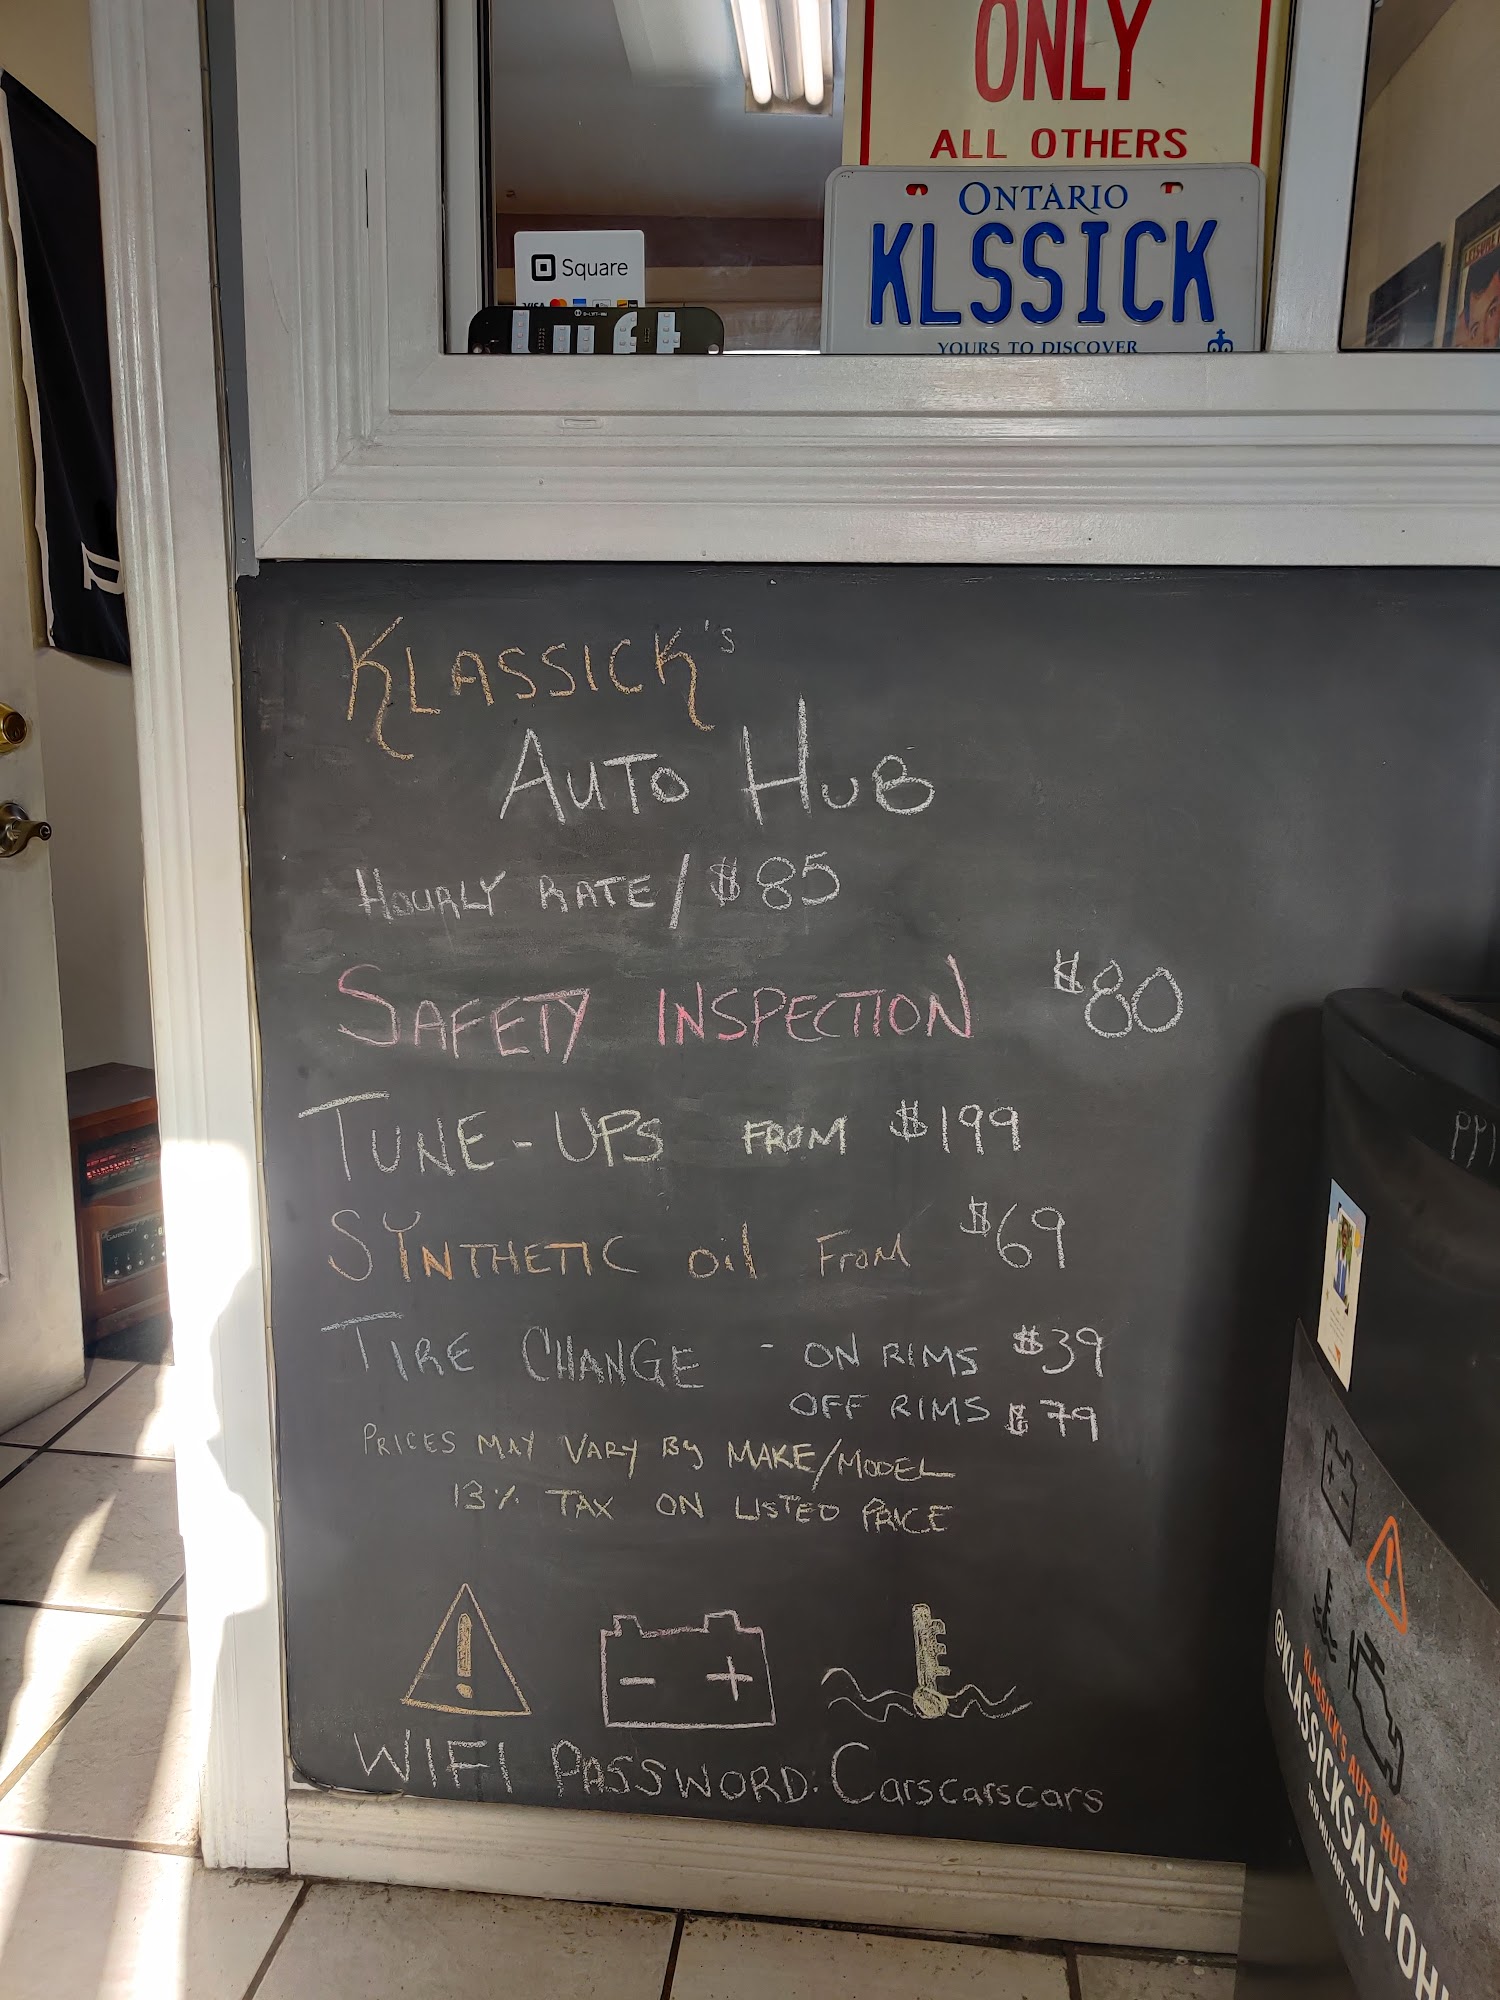 ONLY
ALL OTHERS
ONTARIO
KLSSICK
YOURS TO DISCOVER
Square
VISA
KLASSICK'S
AUTO HUB
HOURLY RATE/$85
SAFETY INSPECTION $80
TUNE-UPS FROM $199
SYNTHETIC Oil FROM $69
TIRE CHANGE - ON RIMS $39
OFF RIMS $79
PRICES MAY VARY BY MAKE/MODEL
13% TAX ON LISTED PRICE
WIFI PASSWORD: Carscarscars
KLASSICK'S AUTO HUB
@KLASSICKSAUTOH
1550 MILITARY TRAIL